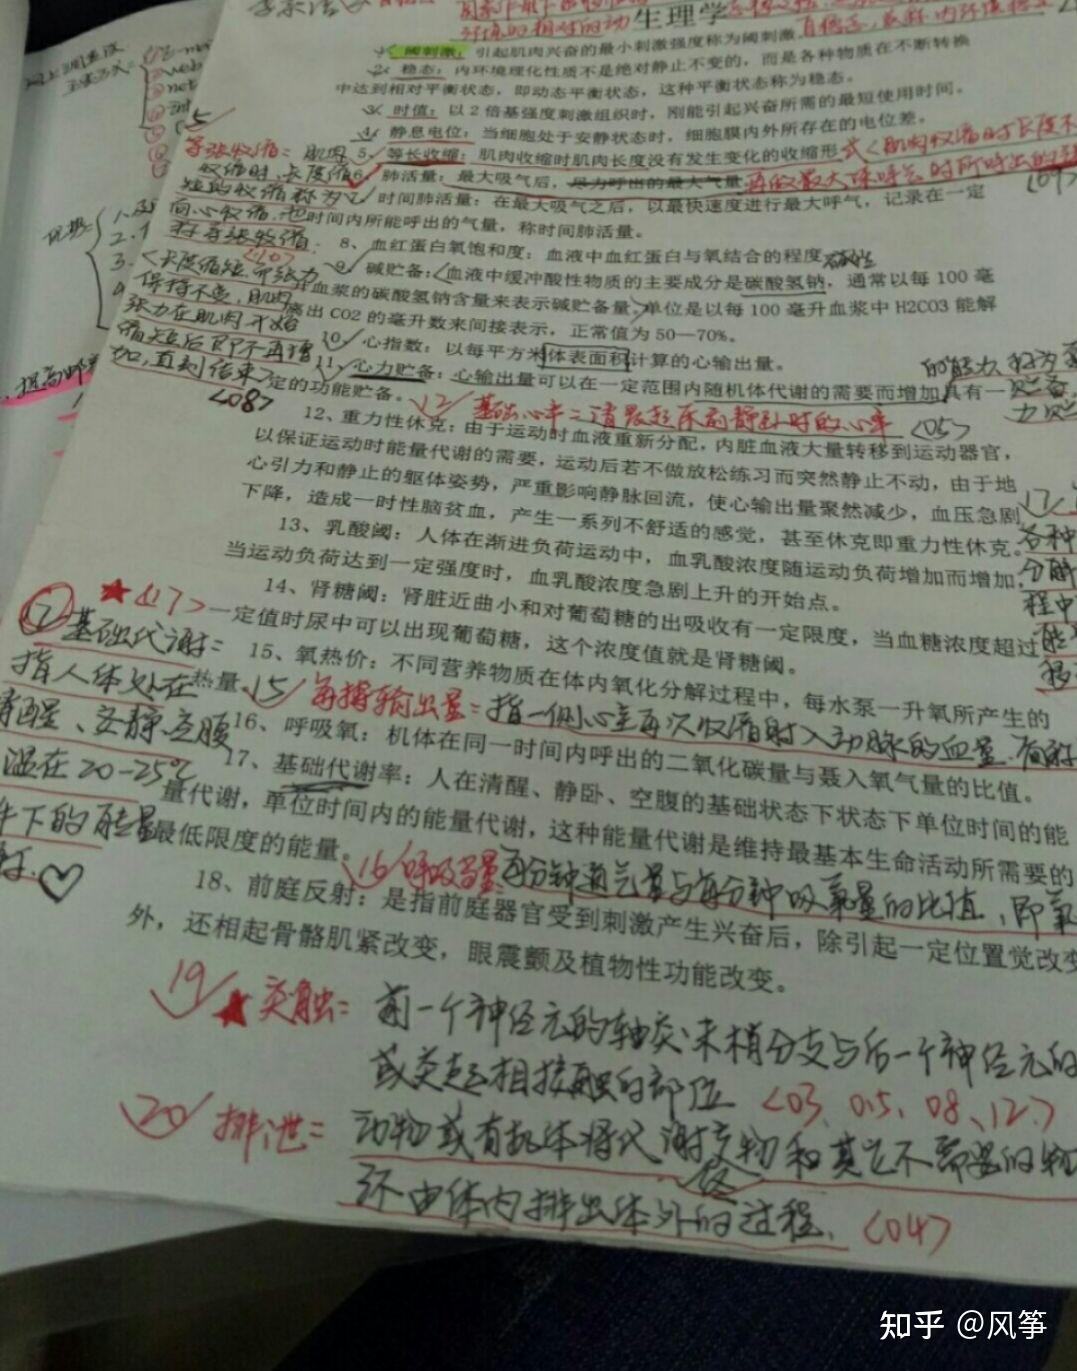 生理学
1、阈刺激：引起肌肉兴奋的最小刺激强度称为阈刺激
2、稳态：内环境理化性质不是绝对静止不变的，而是各种物质在不断转换
中达到相对平衡状态，即动态平衡状态，这种平衡状态称为稳态。
3、时值：以2倍基强度刺激组织时，刚能引起兴奋所需的最短使用时间。
4、静息电位：当细胞处于安静状态时，细胞膜内外所存在的电位差。
5、等长收缩：肌肉收缩时肌肉长度没有发生变化的收缩形式
6、肺活量：最大吸气后，尽力呼出的最大气量
7、时间肺活量：在最大吸气之后，以最快速度进行最大呼气，记录在一定
时间内所能呼出的气量，称时间肺活量。
8、血红蛋白氧饱和度：血液中血红蛋白与氧结合的程度
9、碱贮备：血液中缓冲酸性物质的主要成分是碳酸氢钠，通常以每100毫
升血浆的碳酸氢钠含量来表示碱贮备量，单位是以每100毫升血浆中H2CO3能解
离出CO2的毫升数来间接表示，正常值为50—70%。
10、心指数：以每平方米体表面积计算的心输出量。
11、心力贮备：心输出量可以在一定范围内随机体代谢的需要而增加具有一
定的功能贮备。
12/ 基础心率=清晨起床前静卧时的心率 <05>
12、重力性休克：由于运动时血液重新分配，内脏血液大量转移到运动器官，
以保证运动时能量代谢的需要，运动后若不做放松练习而突然静止不动，由于地
心引力和静止的躯体姿势，严重影响静脉回流，使心输出量聚然减少，血压急剧
下降，造成一时性脑贫血，产生一系列不舒适的感觉，甚至休克即重力性休克。
13、乳酸阈：人体在渐进负荷运动中，血乳酸浓度随运动负荷增加而增加，
当运动负荷达到一定强度时，血乳酸浓度急剧上升的开始点。
14、肾糖阈：肾脏近曲小和对葡萄糖的出吸收有一定限度，当血糖浓度超过
一定值时尿中可以出现葡萄糖，这个浓度值就是肾糖阈。
15、氧热价：不同营养物质在体内氧化分解过程中，每水泵一升氧所产生的
热量
15/ 每搏输出量=指一侧心室每次收缩射入动脉的血量
16、呼吸氧：机体在同一时间内呼出的二氧化碳量与聂入氧气量的比值。
17、基础代谢率：人在清醒、静卧、空腹的基础状态下状态下单位时间的能
量代谢，单位时间内的能量代谢，这种能量代谢是维持最基本生命活动所需要的
最低限度的能量。
16/ 呼吸当量 每分钟通气量与每分钟吸氧量的比值，即氧
18、前庭反射：是指前庭器官受到刺激产生兴奋后，除引起一定位置觉改变
外，还相起骨骼肌紧改变，眼震颤及植物性功能改变。
19/ ★突触= 前一个神经元的轴突末梢分支与后一个神经元的
或突起相接触的部位 <03、05、08、12>
20/ 排泄= 动物或有机体将代谢产物和其它不需要的物
质由体内排出体外的过程. <04>
等张收缩= 肌肉
收缩时，长度缩
短的收缩称为
向心收缩，也
称等张收缩.
<10>
<长度缩短，而张力
保持不变，肌肉
张力在肌肉开始
缩短后即不再增
加，直到结束>
<08>
★<17>
基础代谢=
指人体处在
清醒、安静、空腹
温在20-25℃
件下的能量
知乎 @风筝